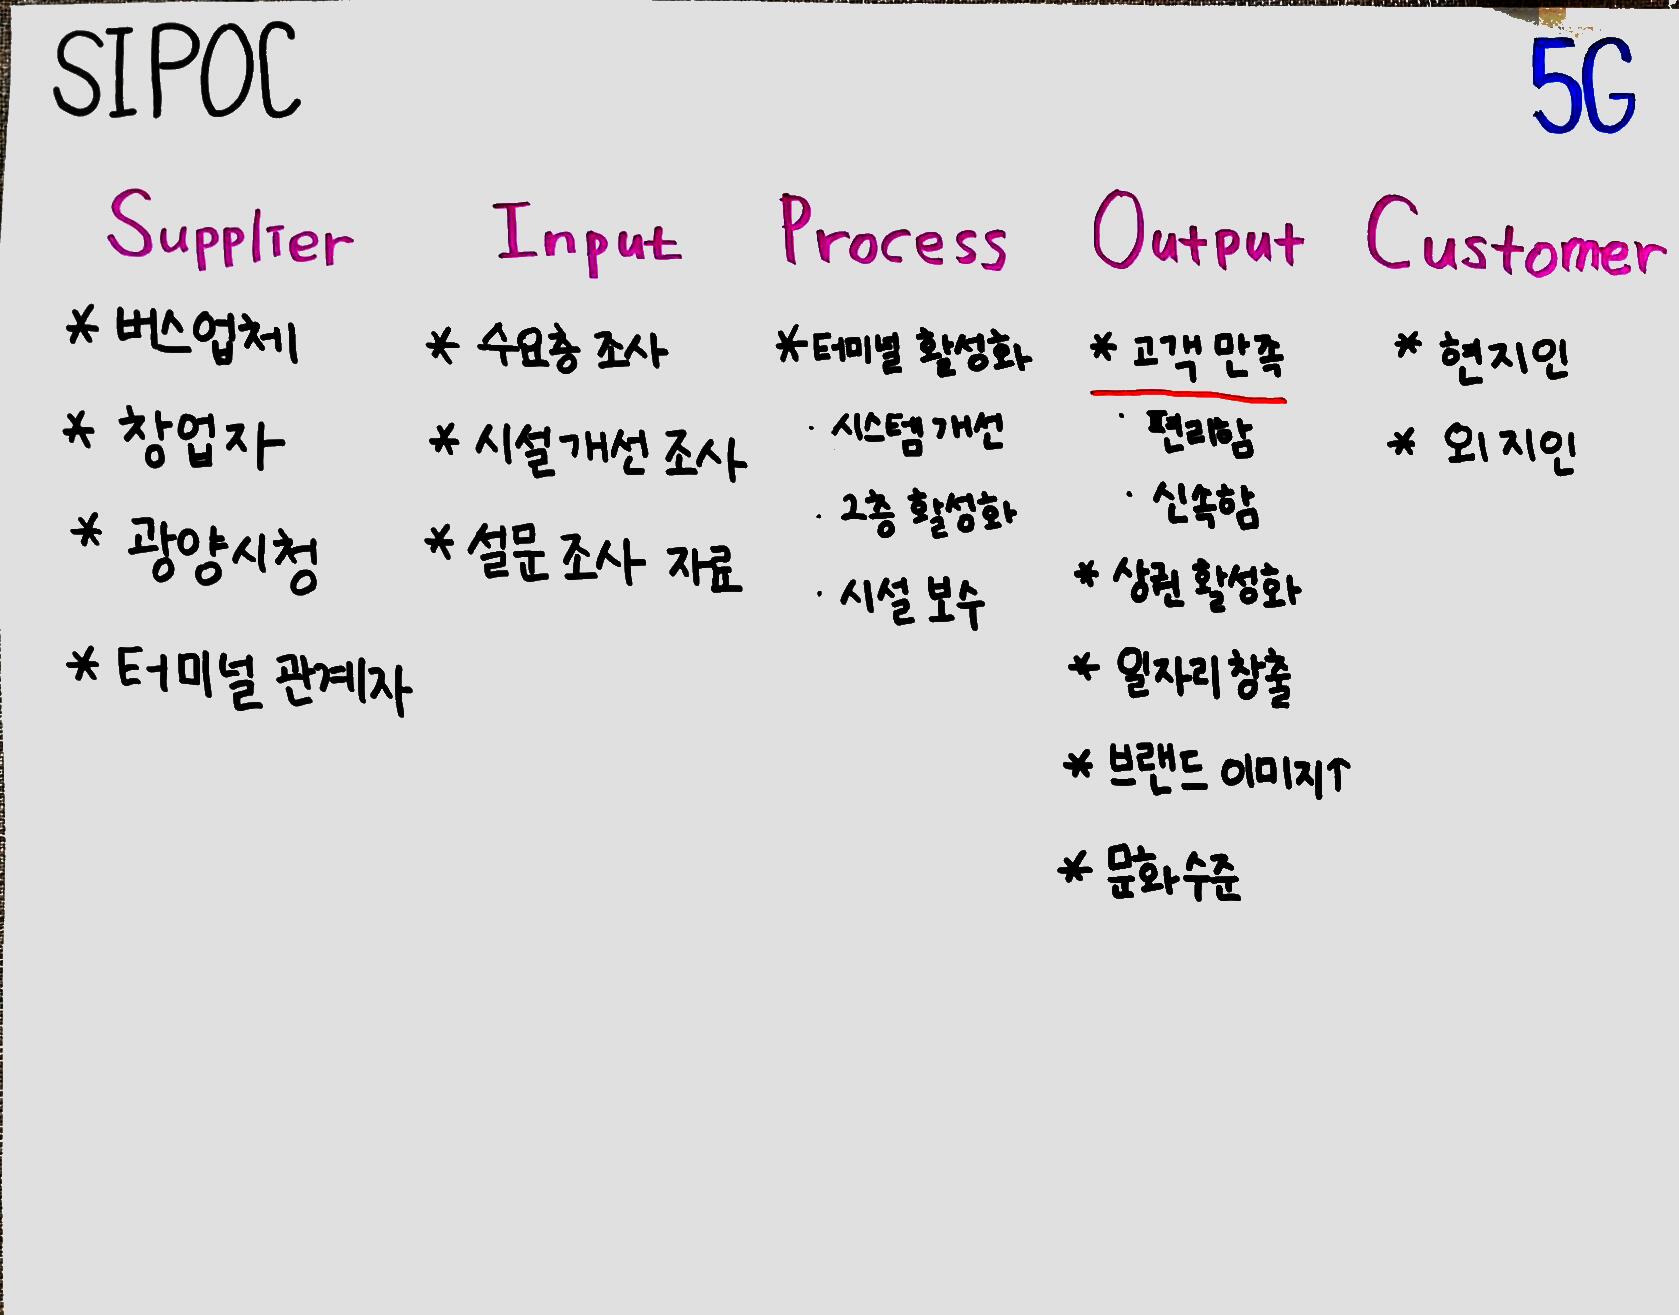 SIPOC
5G
Supplier
* 버스업체
* 창업자
* 광양시청
* 터미널 관계자
Input
* 수요층 조사
* 시설개선 조사
* 설문조사 자료
Process
* 터미널 활성화
· 시스템 개선
· 2층 활성화
· 시설 보수
Output
* 고객 만족
· 편리함
· 신속함
* 상권 활성화
* 일자리 창출
* 브랜드 이미지↑
* 문화수준
Customer
* 현지인
* 외지인